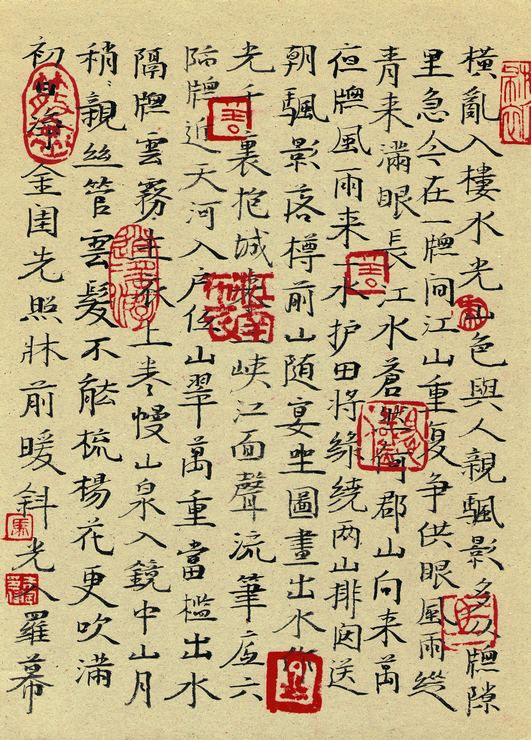 横亂入樓水光山色與人親颿影多從牕隙
里急今在一牕间江山重複争供眼風雨縱
青来滿眼長江水蒼然何郡山向来萬
夜牕風雨来一水护田將綠绕两山排闼送
朝颿影落樽前山随宴坐圖畫出水作
光千裏抱城來三峡江面聲流筆底六
际牕近天河入户低山翠萬重當檻出水
隔牕雲霧生衣上卷幔山泉入鏡中山月
稍稍親丝管雲髮不能梳楊花更吹滿
初日淨金闺先照牀前暖斜光入羅幕